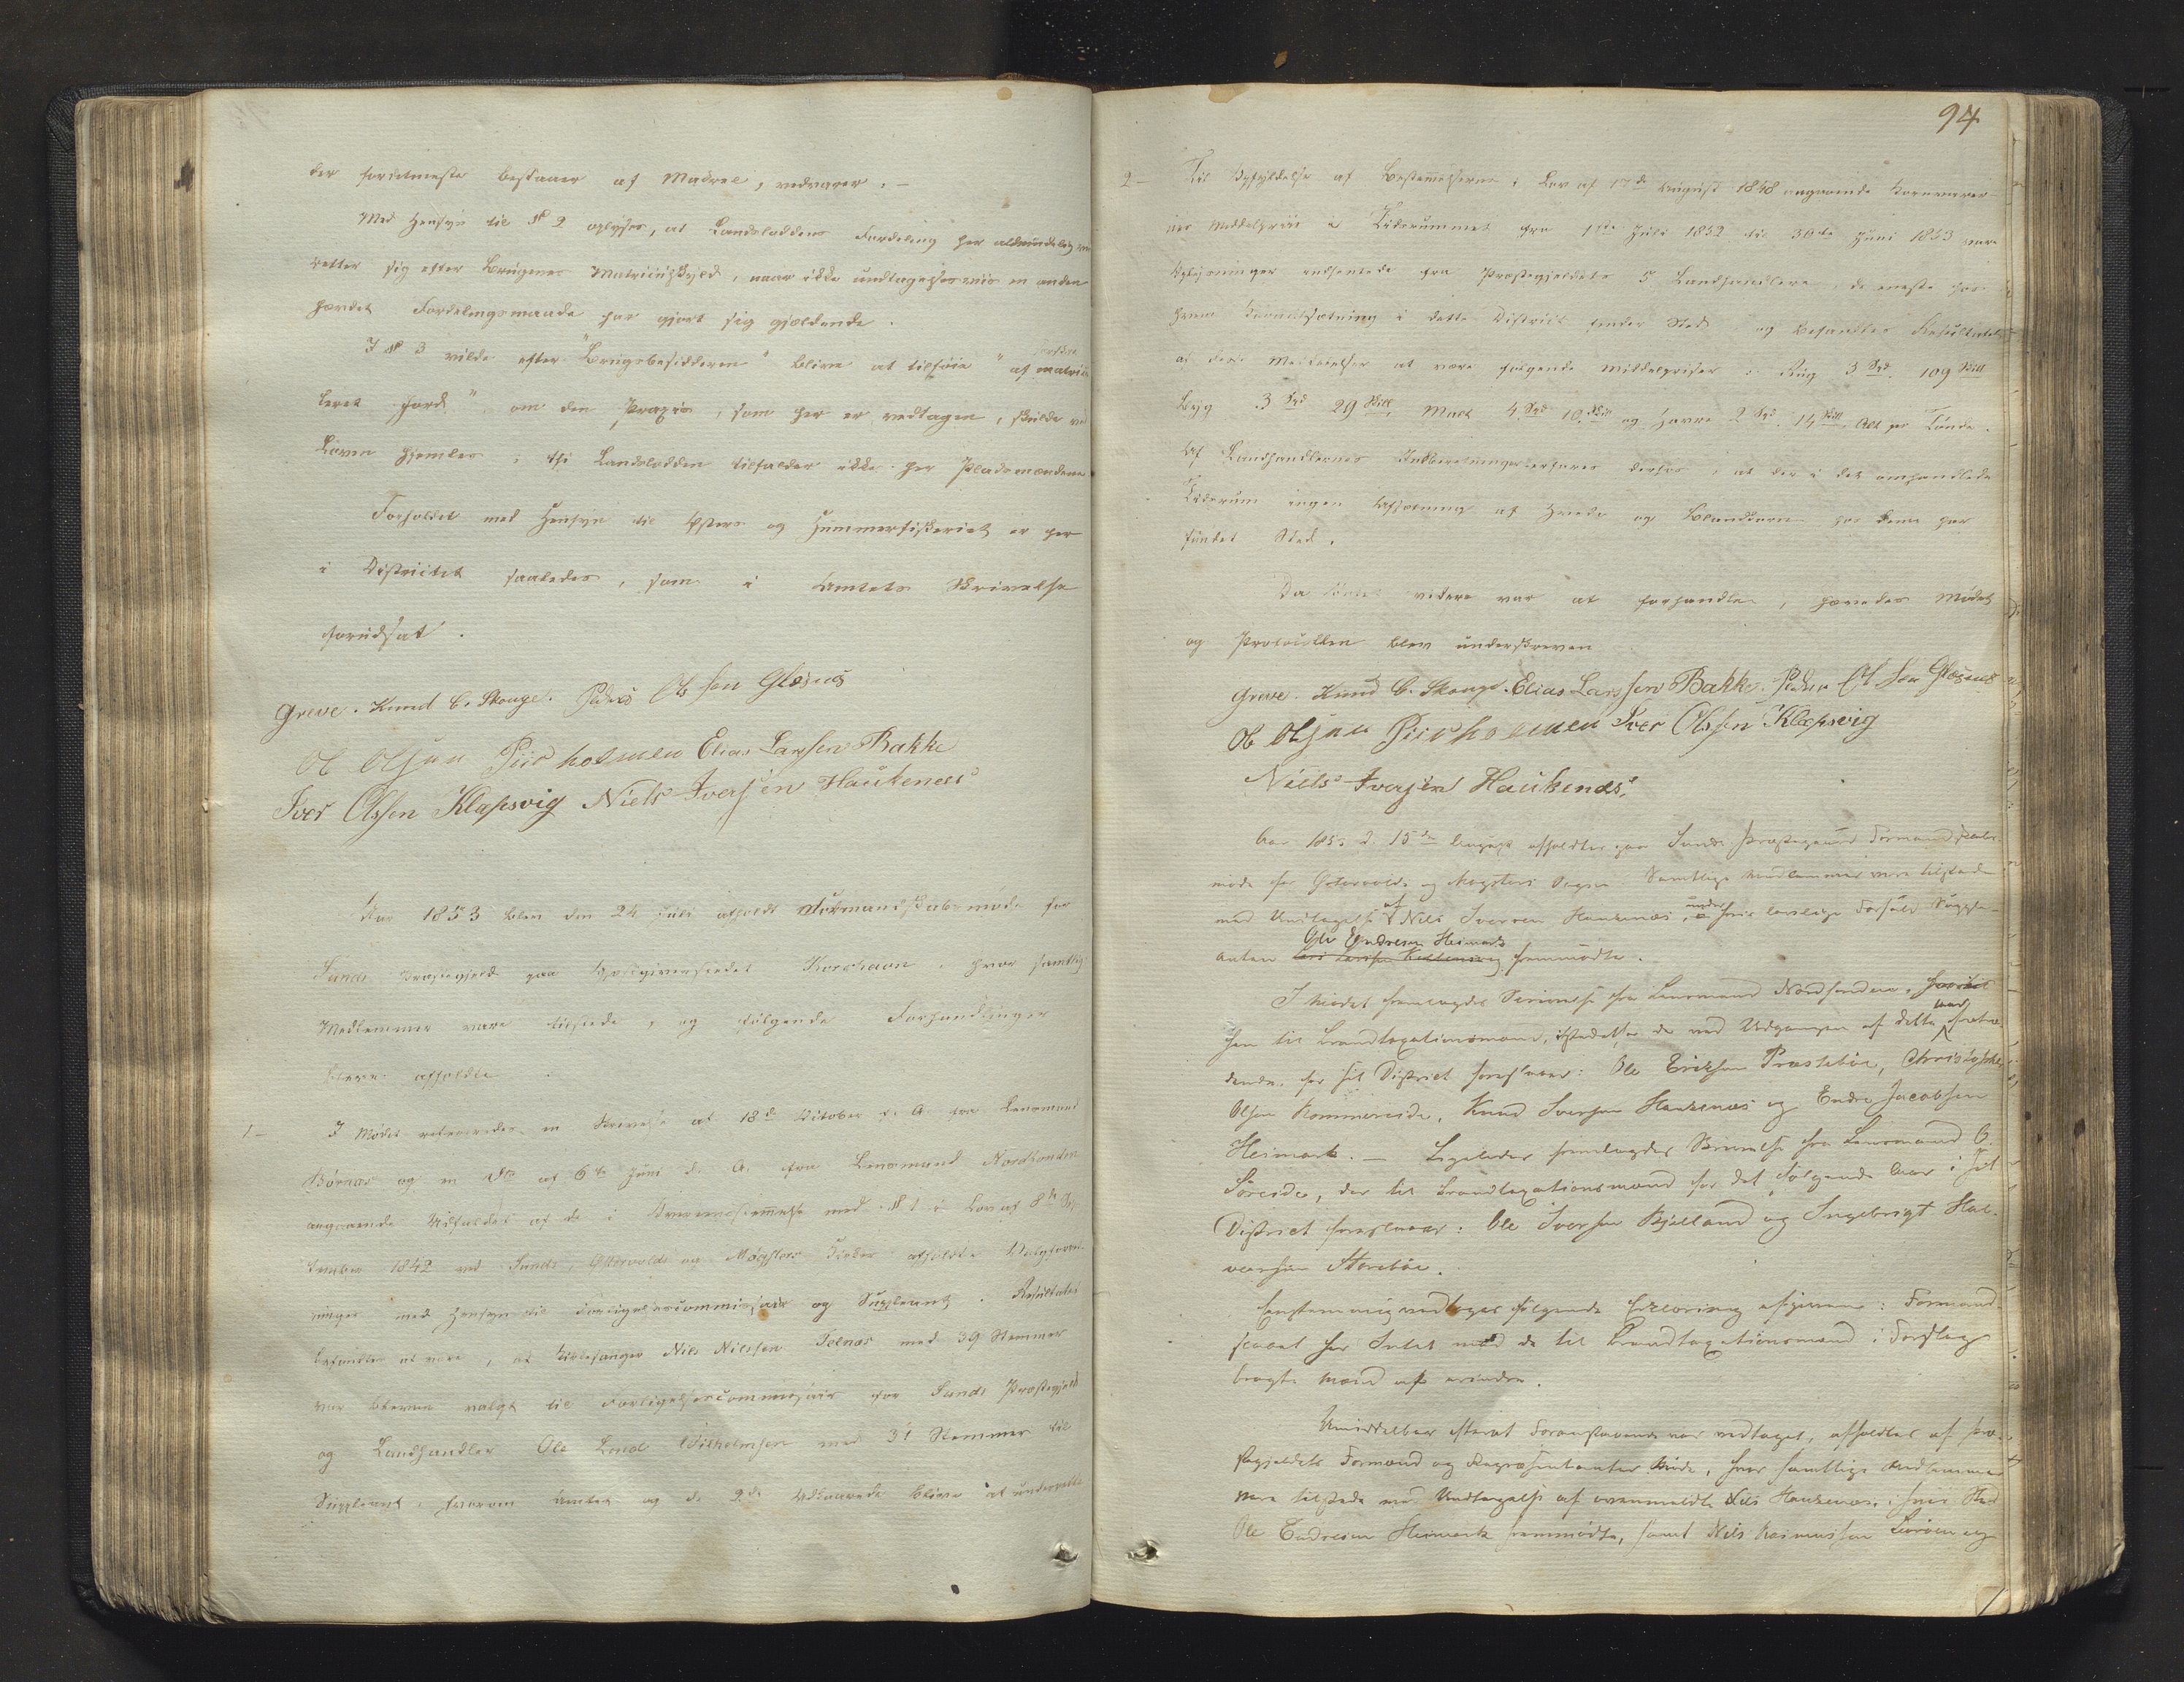 der foruthmeste bestaaer af Makrel, vedvarer. –
Med Hensyn til § 2 oplyses, at Landsloddens Fordeling her almindelig
retter sig efter Brugenes Matriculskyld, naar ikke undtagelsesviis en anden
hævdet Fordelingsmaade har gjort sig gjældende.
I § 3 vilde efter "Brugsbesidderen" blive at tilføie "af matricu
leret Jord", om den Praxis, som her er vedtagen, skulde ved
Loven hjemles; thi Landslodden tilfalder ikke her Pladsmændene
Forholdet med Hensyn til Østers og Hummerfiskeriet er her
i Districtet saaledes, som i Amtets Skrivelse
forudsat.
Greve. Knud C. Skauge. Peder Ols sen Glæsnes
Ol Olsen Piirholmen Elias Larssen Bakke
Iver Olssen Klæpsvig Niels Iversen Haukeness
Aar 1853 blev den 24 Juli afholdt Formandskabsmøde for
Sunds Præstegjeld paa Gjestgiverstedet Korshavn, hvor samtlige
Medlemmer vare tilstede, og følgende Forhandlinger
bleve afholdte
1- I Mødet refereredes en Skrivelse af 18de October f. A. fra Lensmand
Børnæs og en Do af 6te Juni d. A. fra Lensmand Nordsonden
angaaende Udfaldet af de i Overensstemmelse med § 1 i Lov af 8de Sep
tember 1842 ved Sunds, Østervolds og Møgsters Kirker afholdte Valgforret
ninger med Hensyn til Forligelsescommissair og Suppleant. Resultatet
befandtes at være, at Kirkesanger Niels Nilssen Telnæs med 39 Stemmer
var bleven valgt til Forligelsescommissair for Sunds Præstegjeld
og Landhandler Ole Lind Wilhelmsen med 31 Stemmer til
Suppleant, hvorom Amtet og de 2de Udkaarede blive at underrette
94
2- Til Opfyldelse af Bestemmelserne i Lov af 17de August 1848 angaaende Kornvarer-
nes Middelpriis i Tidsrummet fra 1ste Juli 1852 til 30te Juni 1853 vare
Oplysninger indhentede fra Præstegjeldets 5 Landhandlere, de eneste hos
hvem Kornudsætning i dette District finder Sted og befandtes Resultatet
af deres Meddelelser at være følgende Middelpriser: Rug 3 Spd. 109 Skill
Byg 3 Spd 29 Skill, Malt 4 Spd 10 Skill og Havre 2 Spd. 14 Skill, Alt pr Tønde.
Af Landhandlernes Indberetninger erfares derhos, at der i det omhandlede
Tidsrum ingen Afsætning af Hvede og Blandkorn hos dem har
fundet Sted.
Da Intet videre var at forhandle, hævedes Mødet
og Protocollen blev underskreven
Greve. Knud C. Skauge. Elias Larssen Bakke. Peder Ol sen Glæsnes
Ol Olsen Piirholmen Iver Olssen Klæpsvig
Niels Iversen Haukenæs,
Aar 1853 d. 15de August afholdtes paa Sunds Præstegaard Formandskabs
møde for Østervolds og Møgsters Sogne. Samtlige Medlemmer vare tilstede
med Undtagelse af Nils Iversen Haukenæs, under hvis lovlige Forfald Supple-
anten Ole Endresen Heimark fremmødte.
I Mødet fremlagdes Skrivelse fra Lensmand Nordsonden, hvori
han til Brandtaxationsmænd, istedetfor de ved Udgangen af dette Aar fratræ
dende, for sit District foreslaaer: Ole Eriksen Præstebøe, Christopher
Olsen Kommereide, Knud Iversen Haukenæs og Endre Jacobsen
Heimark. – Ligeledes fremlagdes Skrivelse fra Lensmand O.
Søreide, der til Brandtaxationsmænd for det følgende Aar i sit
District foreslaaer: Ole Iversen Kjelland og Ingebrigt Hal-
vorsen Storebøe.
Eenstemmig vedtoges følgende Erklæring afgiven: Formand
skabet har Intet mod de til Brandtaxationsmænd i Forslag
bragte Mænd at erindre.
Umiddelbar efterat Foranstaaende var vedtaget, afholdtes af Præ-
stegjeldets Formænd og Repræsentanter Møde, hvor samtlige Medlemmer
vare tilstede med Undtagelse af ovenmeldte Nils Haukenæs, i hvis Sted
Ole Endresen Heimark fremmødte, samt Nils Rasmussen Lerøen og